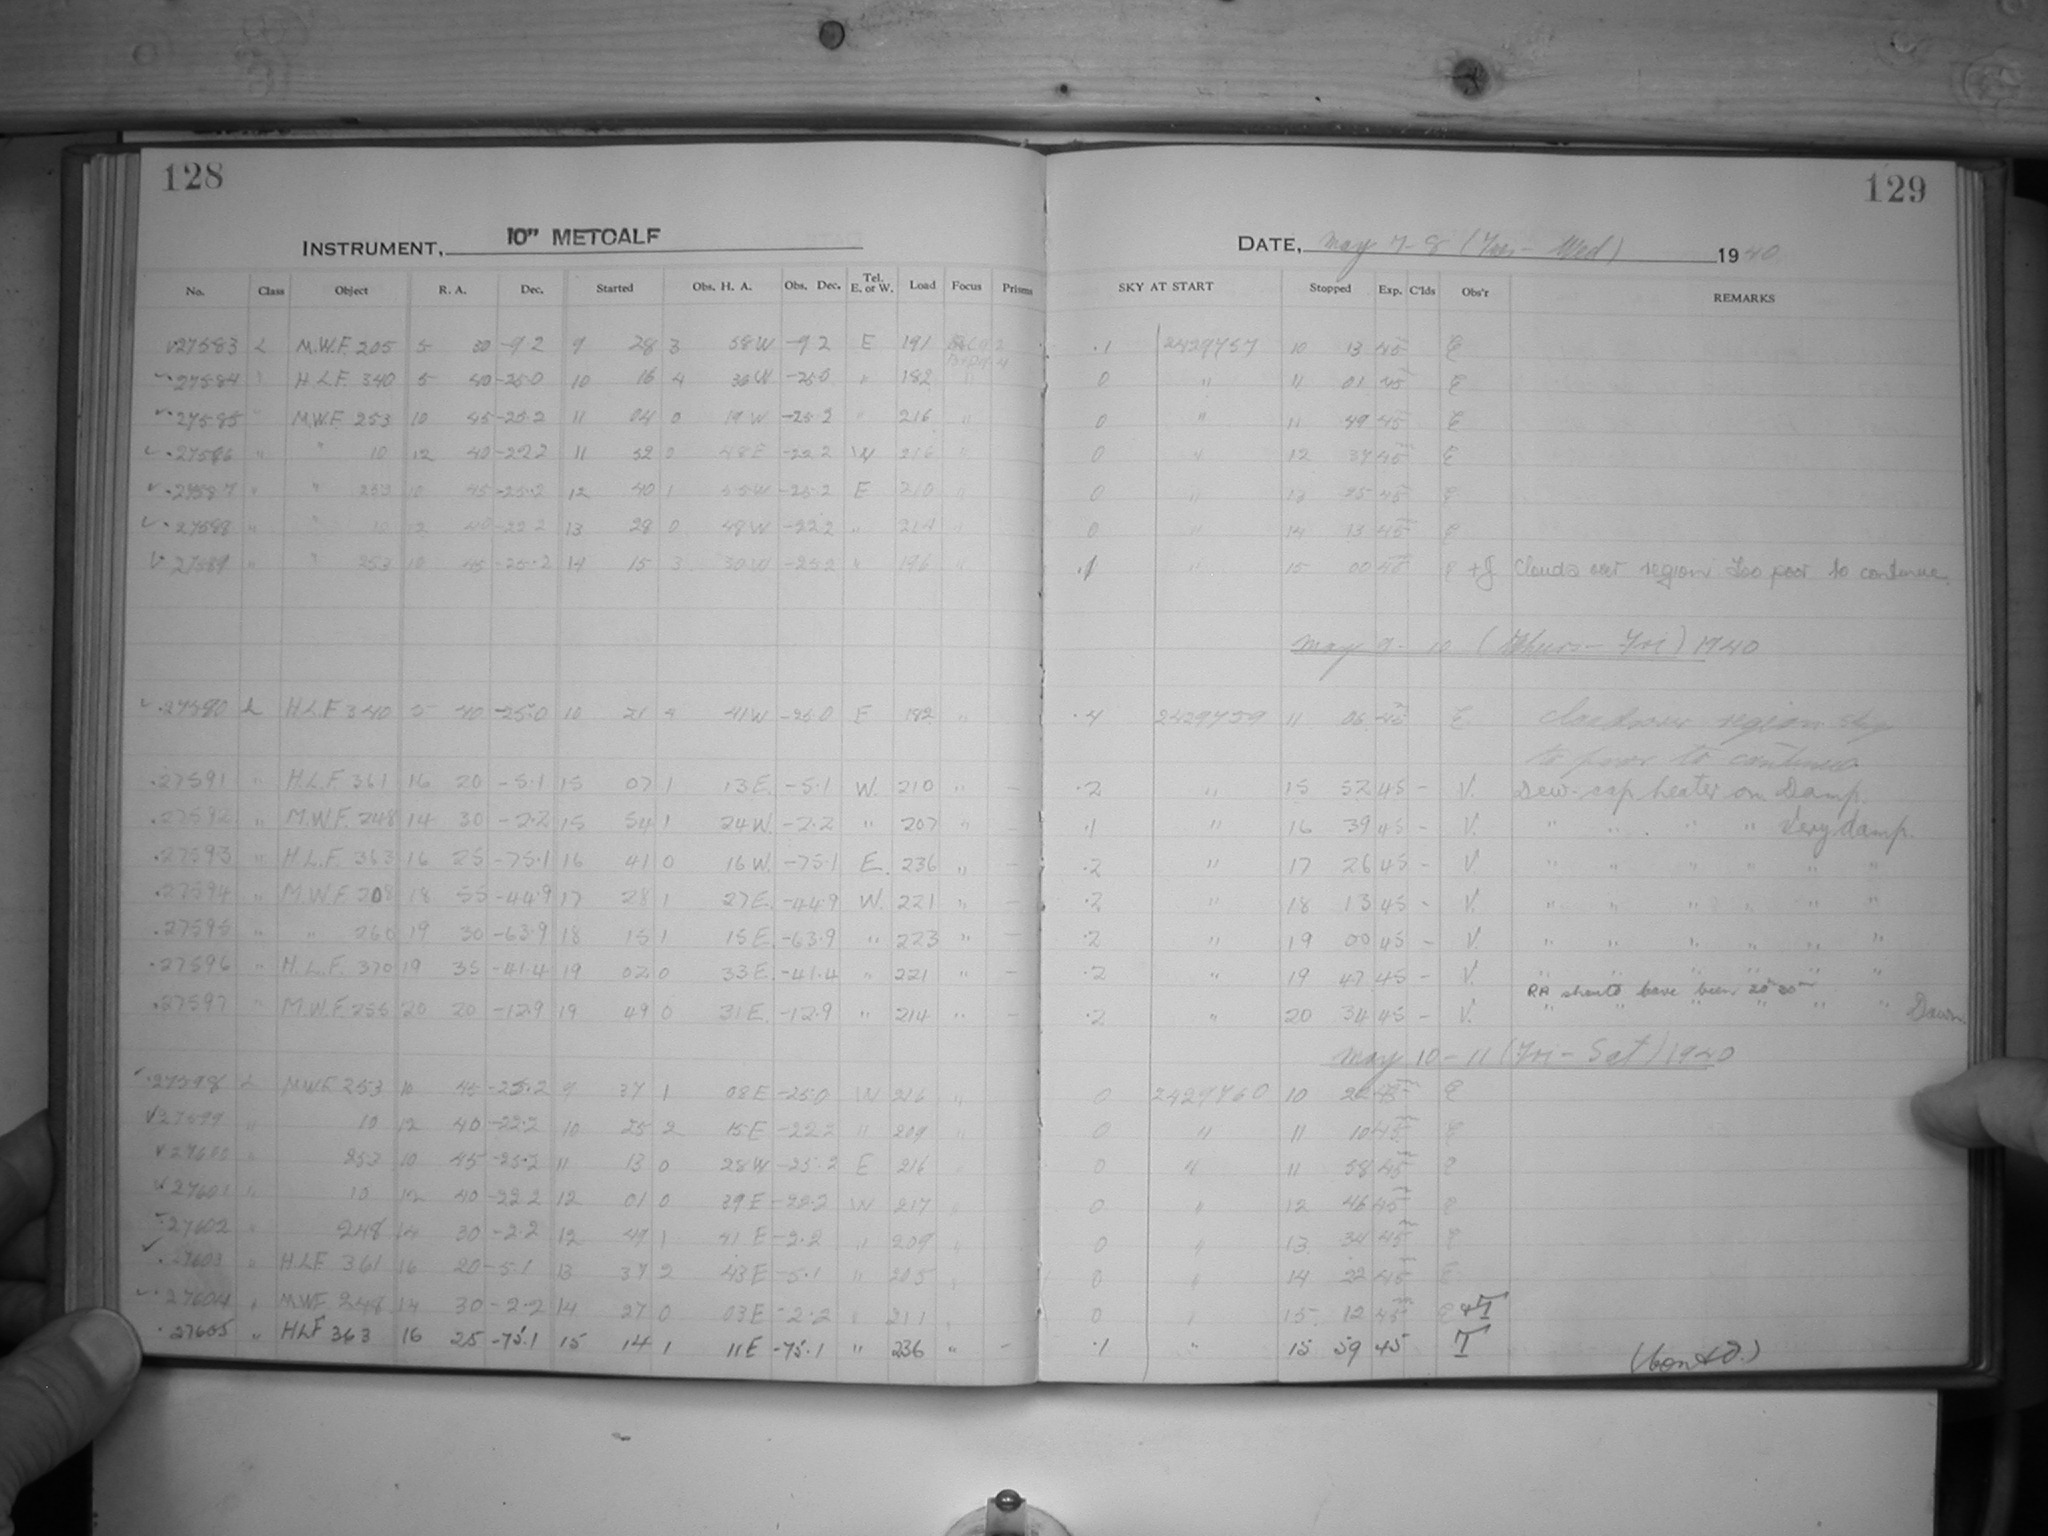 128
129
INSTRUMENT, 10" METCALF
DATE, May 7-8 (Tues - Wed) 1940
No. Class Object R. A. Dec. Started Obs. H. A. Obs. Dec. Tel. E. or W. Load Focus Prisms SKY AT START Stopped Exp. C'lds Obs'r REMARKS
27583 L M.W.F. 205 5 30 -9.2 9 28 3 58W -9.2 E 191 .1 2429757 10 13 45 E
27584 " H.L.F. 340 5 40 -25.0 10 16 4 36W -25.0 " 182 " 0 " 11 01 45 E
27585 " M.W.F. 253 10 45 -25.2 11 04 0 19W -25.2 " 216 " 0 " 11 49 45 E
27586 " " 10 12 40 -22.2 11 52 0 48E -22.2 W 216 " 0 " 12 37 45 E
27587 " " 253 10 45 -25.2 12 40 1 55W -25.2 E 210 " 0 " 13 25 45 E
27588 " " 10 12 40 -22.2 13 28 0 48W -22.2 " 214 " 0 " 14 13 45 E
27589 " " 253 10 45 -25.2 14 15 3 30W -25.2 " 196 " .1 " 15 00 45 E + J Clouds over region too poor to continue.
May 9 - 10 (Thurs - Fri) 1940
27590 L H.L.F 340 5 40 -25.0 10 21 4 41W -25.0 E 182 " .4 2429759 11 06 45 E Clouds over region sky
to poor to continue
.27591 " H.L.F. 361 16 20 -5.1 15 07 1 13E. -5.1 W. 210 " - .2 " 15 52 45 - V. Dew-cap heater on. Damp.
.27592 " M.W.F. 248 14 30 -2.2 15 54 1 24W. -2.2 " 207 " - .1 " 16 39 45 - V. " " " " Very damp.
.27593 " H.L.F. 363 16 25 -75.1 16 41 0 16W. -75.1 E. 236 " - .2 " 17 26 45 - V. " " " " " "
.27594 " M.W.F. 208 18 55 -44.9 17 28 1 27E. -44.9 W. 221 " - .2 " 18 13 45 - V. " " " " " "
.27595 " " 260 19 30 -63.9 18 15 1 15E. -63.9 " 223 " - .2 " 19 00 45 - V. " " " " " "
.27596 " H.L.F. 370 19 35 -41.4 19 02 0 33E. -41.4 " 221 " - .2 " 19 47 45 - V. " " " " " "
RA should have been 20 20
.27597 " M.W.F. 256 20 20 -12.9 19 49 0 31E. -12.9 " 214 " - .2 " 20 34 45 - V. " " " " " " Dawn.
May 10 - 11 (Fri - Sat) 1940
.27598 L M.W.F. 253 10 45 -25.2 9 37 1 08E -25.0 W 216 " 0 2429760 10 22 45 E
27599 " 10 12 40 -22.2 10 25 2 15E -22.2 " 209 " 0 " 11 10 45 E
27600 " 253 10 45 -25.2 11 13 0 28W -25.2 E 216 0 " 11 58 45 E
27601 " 10 12 40 -22.2 12 01 0 39E -22.2 W 217 " 0 " 12 46 45 E
27602 " 248 14 30 -2.2 12 49 1 41E -2.2 " 209 " 0 " 13 34 45 E
.27603 " H.L.F 361 16 20 -5.1 13 37 2 43E -5.1 " 205 " 0 " 14 22 45 E
.27604 " M.W.F. 248 14 30 -2.2 14 27 0 03E -2.2 " 211 " 0 " 15 12 45 E & T
.27605 " HLF 363 16 25 -75.1 15 14 1 11E -75.1 " 236 " - .1 " 15 59 45 T
(Cont'd.)